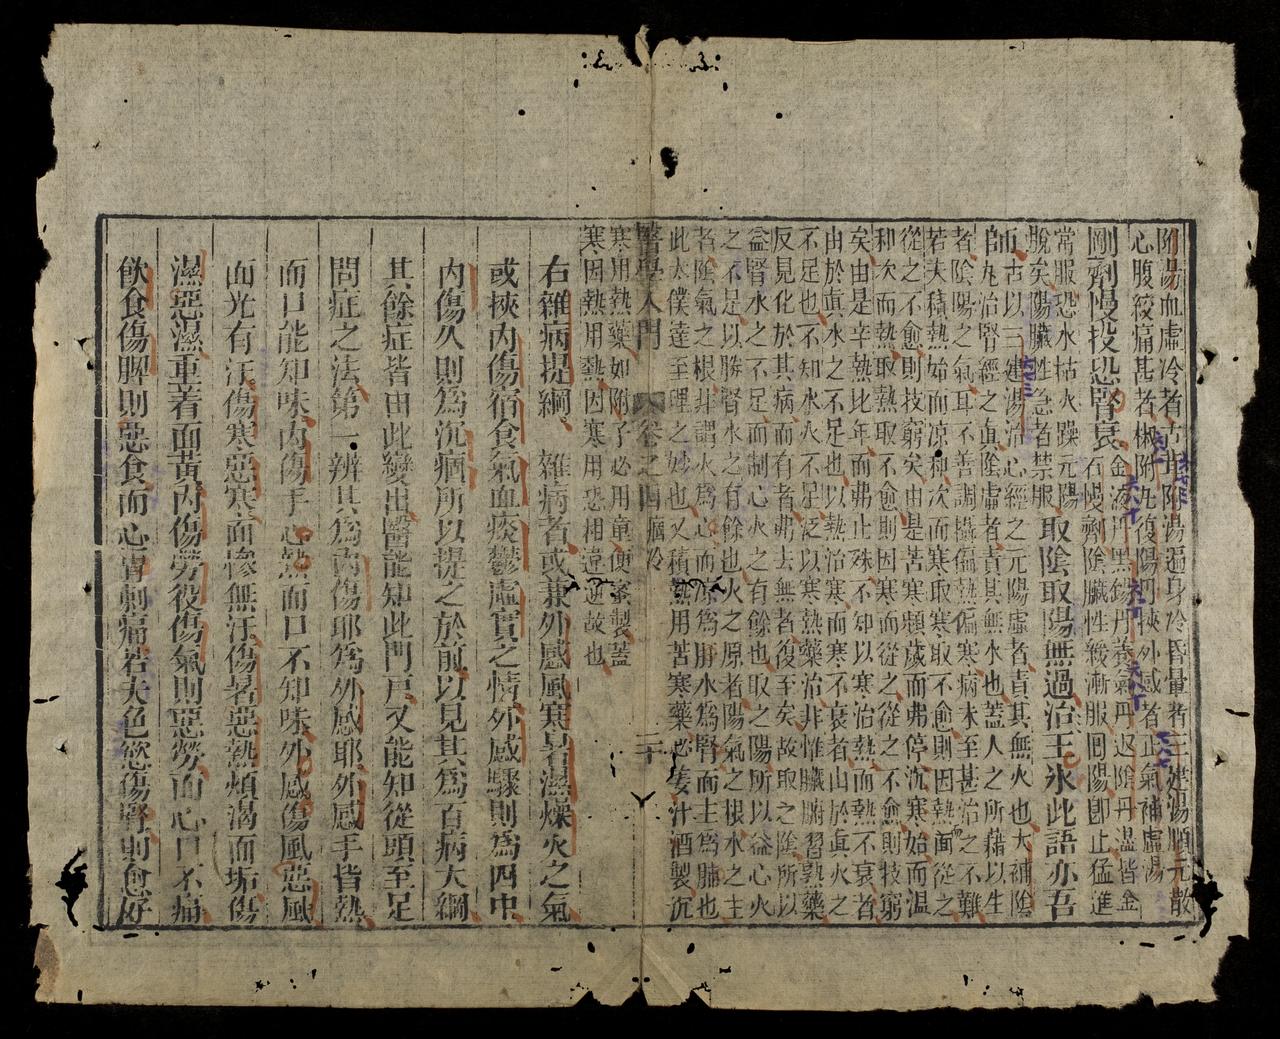 附湯血虛冷者古苓附湯遍身冷昏暈者三建湯順元散
心腹絞痛甚者椒附丸復陽丹挾外感者正氣補虛湯
金液丹黑錫丹養氣丹迟陰丹溫皆金
剛劑慢投恐腎衰
石慢劑陰臟性緩漸服回陽即止猛進
常服恐水枯火躁元陽
脫矣陽臟性急者禁服
取陰取陽無過治王氷此語亦吾
師
古以三建湯治心經之元陽虛者責其無火也大補陰
丸治腎經之眞陰虛者責其無水也蓋人之所藉以生
者陰陽之氣耳不善調攝偏熱偏寒病未至甚治之不難
若夫積熱始而凉和次而寒取寒取不愈則因熱而從之
從之不愈則技窮矣由是苦寒頻歲而弗停沉寒始而溫
和次而熱取熱取不愈則因寒而從之從之不愈則技窮
矣由是辛熱比年而弗止殊不知以寒治熱而熱不衰者
由於眞水之不足也以熱治寒而寒不衰者由於眞火之
不足也不知水火不足泛以寒熱藥治非惟臟腑習熟藥
反見化於其病而有者弗去無者復至矣故取之陰所以
益腎水之不足而制心火之有餘也取之陽所以益心火
之不足以勝腎水之有餘也火之原者陽氣之根水之主
者陰氣之根非謂火爲心而源爲肝水爲腎而主爲肺也
此太僕達至理之妙也又積熱用苦寒藥必姜汁酒製沉
醫學入門 卷之四 痼冷 二十
寒用熱藥如附子必用童便蜜製蓋
寒因熱用熱因寒用惡相違逆故也
右雜病提綱、雜病者或兼外感風寒暑濕燥火之氣
或挾內傷宿食氣血痰鬱虛實之情外感驟則爲四中
內傷久則爲沉痼所以提之於前以見其爲百病大綱
其餘症皆由此變出醫能知此門戶又能知從頭至足
問症之法第一辨其爲內傷耶爲外感耶外感手皆熱
而口能知味內傷手心熱而口不知味外感傷風惡風
面光有汗傷寒惡寒面慘無汗傷暑惡熱煩渴面垢傷
濕惡濕重着面黃內傷勞役傷氣則惡勞而心口不痛
飲食傷脾則惡食而心胃刺痛若夫色慾傷腎則愈好